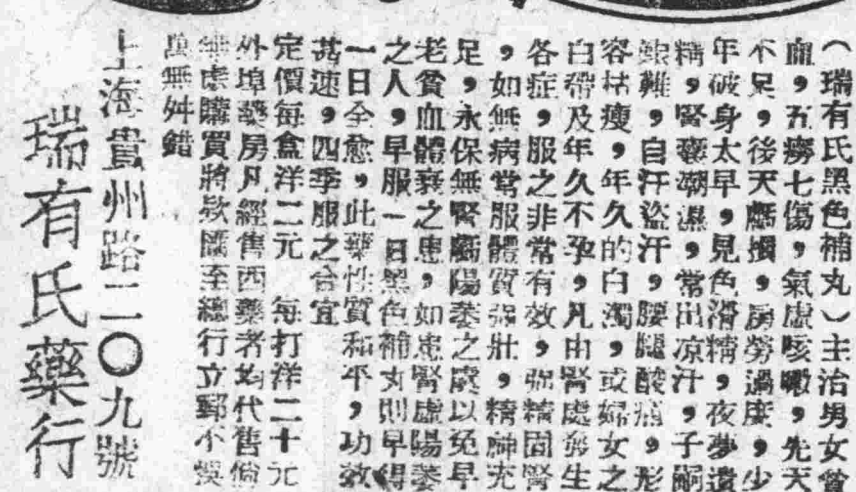 （瑞有氏黑色補丸）主治男女
血，五癆七傷，氣虛咳嗽，先天
不足，後天虧損，房勞過度，少
年破身太早，見色滑精，夜夢遺
精，腎囊潮濕，常出凉汁，子嗣
艱難，自汗盜汗，腰腿酸痛，形
容枯瘦，年久的白濁，或婦女之
白帶及年久不孕，凡由腎處發生
各症，服之非常有效，强精固腎
，如無病常服體質强壯，精神充
足，永保無腎虧陽萎之虞以免早
老貧血體衰之患，如患腎虛陽萎
之人，早服一日黑色補丸則早得
一日全愈，此藥性質和平，功效
甚速，四季服之合宜
定價每盒洋二元　每打洋二十元
外埠藥房凡經售西藥者均代售倘
無處購買將欵匯至總行立郵不悞
萬無舛錯
上海貴州路二〇九號
瑞有氏藥行